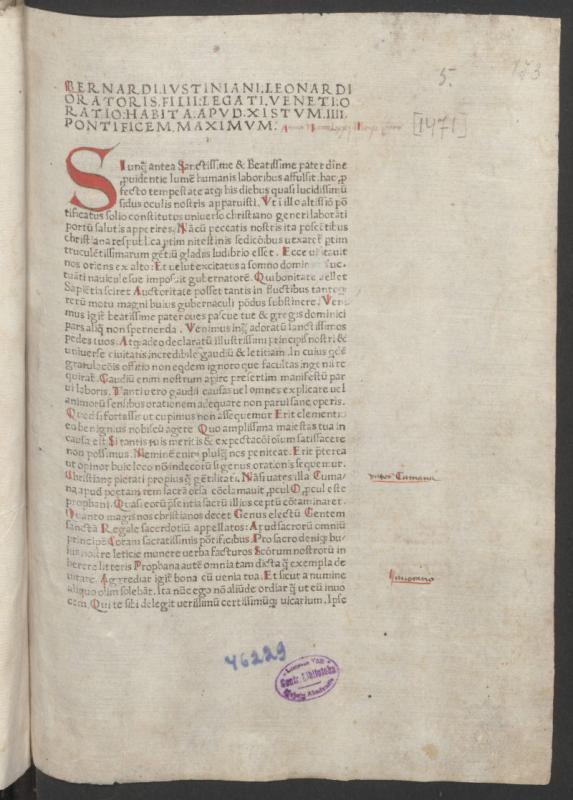 5.
173
BERNARDI.IVSTINIANI.LEONARDI
ORATORIS.FILII:LEGATI.VENETI:O
RATIO:HABITA:APVD.XISTVM.IIII.
PONTIFICEM.MAXIMVM:
[1471]
SI unq̃ antea Sanctissime & Beatissime pater diuine
ꝓuidentie lumẽ humanis laboribus affulsit. hac ꝓ
fecto tempestate atqꝫ his diebus quasi lucidissimũ
sidus oculis nostris apparuisti. Vt i illo altissiõ põ
tificatus solio constitutus uniuerso christiano generi laborãti
portũ salutis apperires. Nã cũ peccatis nostris ita poscẽtibus
christiana respublica ptim itestinis sedicõibus uexaret᷑ ptim
truculẽtissimarum gẽtiũ gladiis ludibrio esset. Ecce uisitauit
nos oriens ex alto: Et uelut excitatus a somno dominus fluc
tuãti nauicule sue imposuit gubernatorẽ. Qui bonitate uellet
Sapiẽtia sciret Auctoritate posset tantis in fluctibus tante
rerũ motu magni huius gubernaculi põdus substinere. Veni
mus igit᷑ beatissime pater oues pascue tue & gregis dominici
pars aliq̃ non spernenda. Venimus inq̃ adoratũ sanctissimos
pedes tuos. Atqꝫ adeo declaratũ illustrissimi principis nostri &
uniuerse ciuitatis, incredibile gaudiũ & letitiam. In cuius q̃dẽ
gratulacõis offitio non eqdem ignoro que facultas ingenii re
quirat᷑. Gaudiũ enim nostrum apire presertim manifestũ par
ui laboris. Tanti uero gaudii causas uel omnes explicare uel
animorũ sensibus orationem adequare non parui sane operis.
Quod si fortasse ut cupimus non assequemur Erit clementie
eu benignius nobiscũ agere Quo amplissima maiestas tua in
causa est Si tantis tuis meritis & expectacõi oium satisfacere
non possimus. Neminẽ eniꝫ pluriq̃ nos peniteat. Erit p̃terea
ut opinor huic loco nõ indecorũ si genus orationis sequemur.
Christiane pietati propius q̃ gẽtilitati. Nã si uates illa Cuma/
na apud poetam rem sacrã orsa cõclamauit, pcul O, pcul este
prophani. Quasi eorũ p̃sentia sacrũ illius ceptũ cõtaminaret᷑
Quanto magis nos christianos decet Genus electũ Gentem
sanctã Regale sacerdotiũ appellatos: Apud sacrorũ omniũ
principẽ Coram sacratissimis põtificibus Pro sacro deniqꝫ hu
ius nostre leticie munere uerba facturos Scõrum nostrorũ in
herere litteris Prophana autẽ omnia tam dicta q̃ exempla de
uitare. Aggrediar igit᷑ bona cũ uenia tua. Et sicut a numine
aliquo olim solebãt. Ita nũc ego nõ aliũde ordiar q̃ ut eũ inuo
cem. Qui te sibi delegit uerissimũ certissimũqꝫ uicarium. Ipse
Cumana
46229